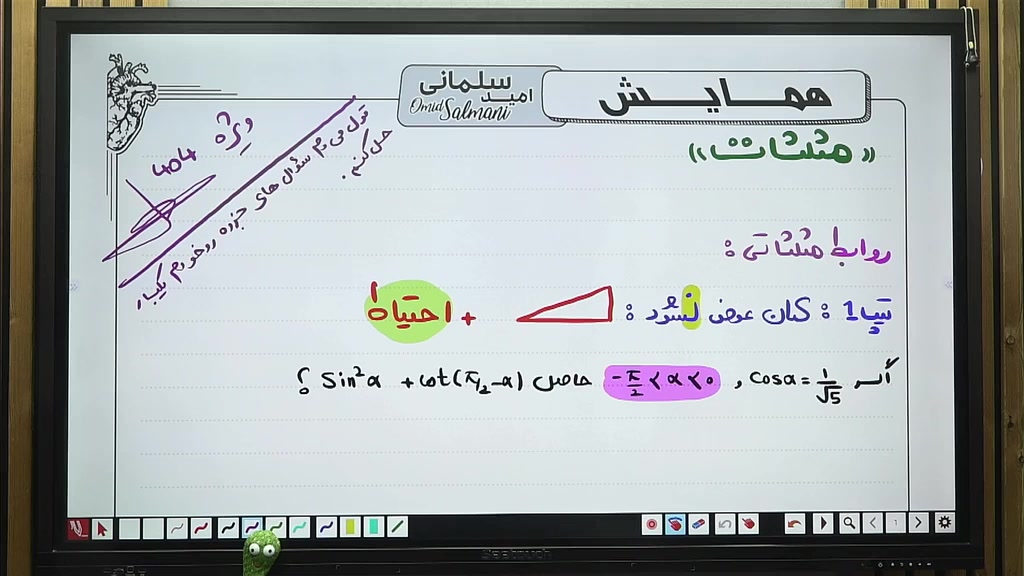 همایش
امید سلمانی
Omid Salmani
«مثلثات»
ویژه 404
قول می‌دم سؤال های جزوه رو خودم یکبار
حل کنم.
روابط مثلثاتی :
تیپ 1 : کمان عوض نشود : + احتیاط !
اگر cosα = 1/√5 , -π/2 < α < 0 حاصل sin²α + cot(π/2 - α) ؟
Seetouch